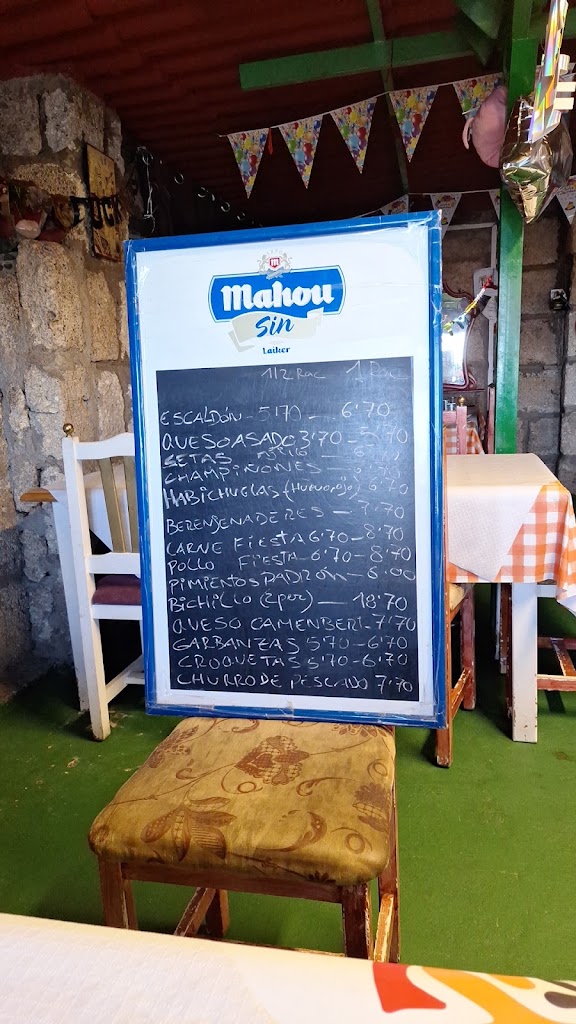 Mahou
Sin
Laiker
1/2 Rac 1 Rac
ESCALDÓN - 5'70 - 6'70
QUESO ASADO 3'70 - 5'70
SETAS
CHAMPIÑONES
HABICHUELAS 6'70
BERENJENA DE RES - 7'70
CARNE FIESTA 6'70 - 8'70
POLLO FIESTA - 6'70 - 8'70
PIMIENTOS PADRÓN - 6'00
BICHILLO (2 per) - 18'70
QUESO CAMENBERT - 7'70
GARBANZAS 5'70 - 6'70
CROQUETAS 5'70 - 6'70
CHURRO DE PESCADO 7'70